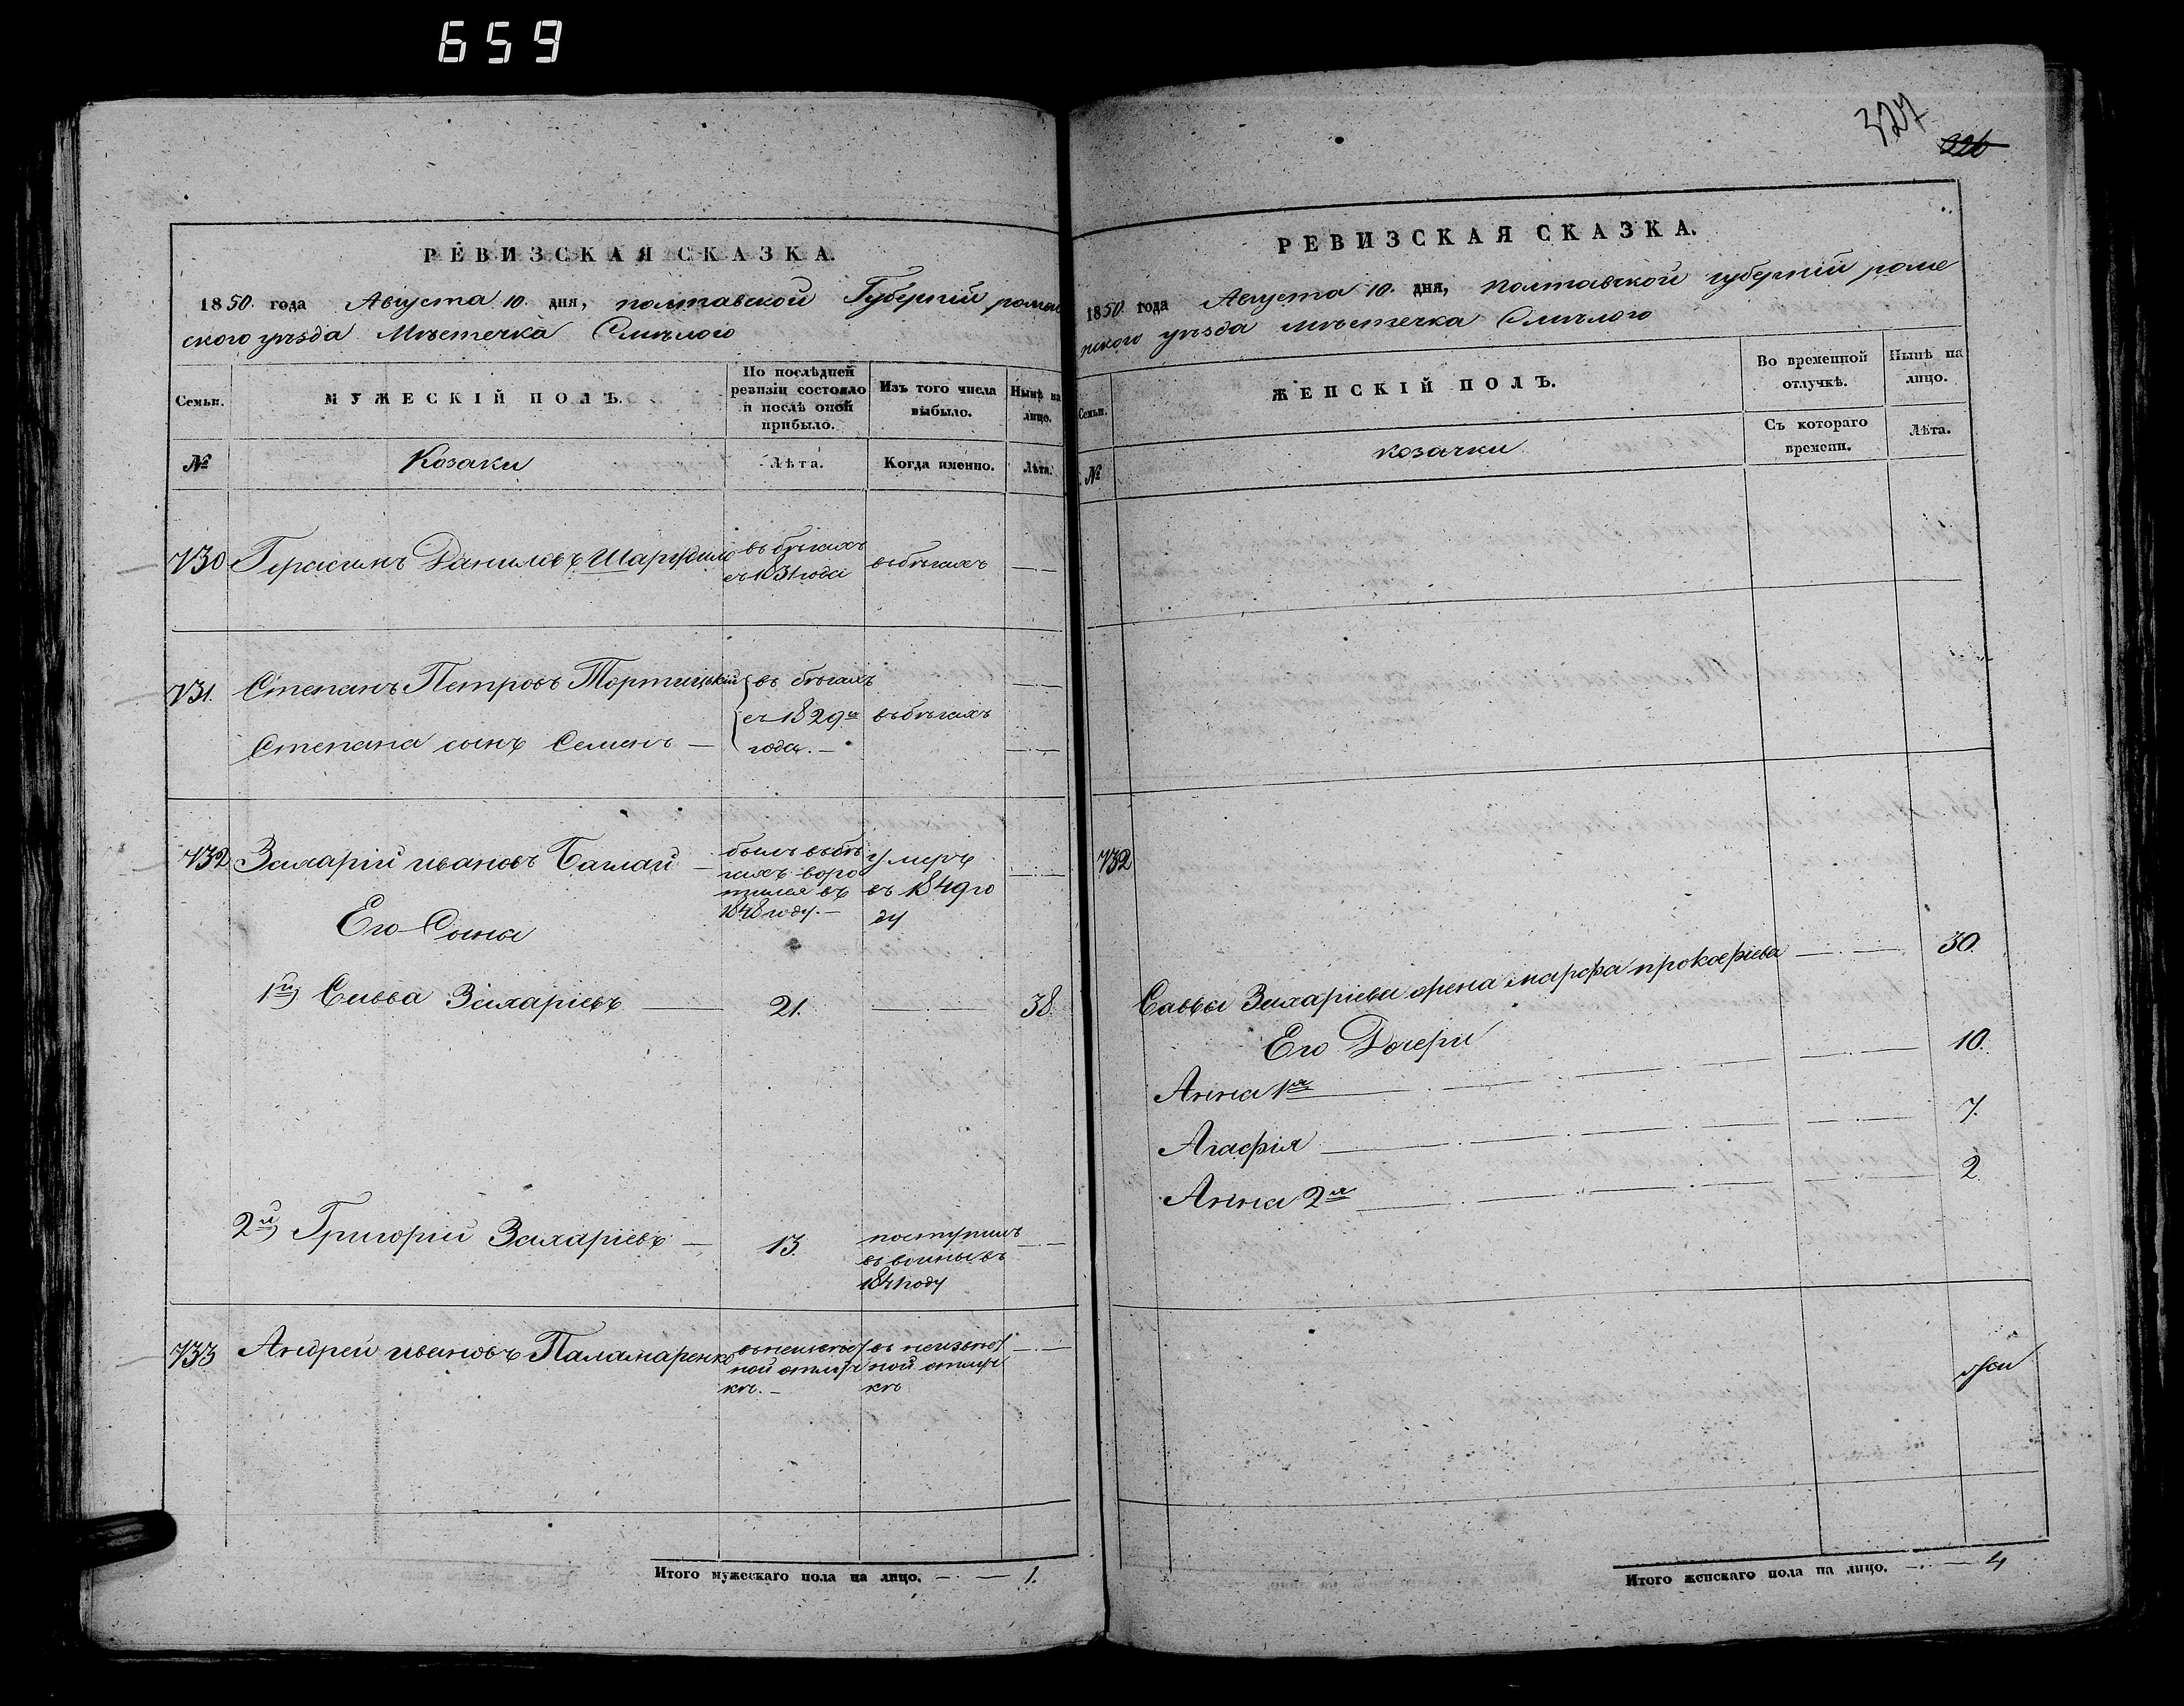 659
327
226
РЕВИЗСКАЯ СКАЗКА.
1850 года Августа 10. дня, полтавской Губерніи ромен
ского уѣзда Мѣстечка Смѣлого
Семьи.
МУЖЕСКІЙ ПОЛЪ.
По послѣдней
ревизіи состояло
и послѣ оной
прибыло.
Изъ того числа
выбыло.
Нынѣ на
лицо.
№
Козаки
Лѣта.
Когда именно.
Лѣта.
730 Герасимъ Даниловъ Шаргдило
въ бѣгахъ
съ 1831 года
въ бѣгахъ
731. Степанъ Петровъ Тортицькій
въ бѣгахъ
съ 1829го
года. —
въ бѣгахъ
Степана сынъ Семенъ —
732 Захарій ивановъ Баглай —
былъ въ бѣ
гахъ воро
тился въ
1848 году. —
умеръ
въ 1849 го
ду
Его Сыны
1й) Савва Захаріевъ — 21. — 38.
2й) Григорій Захаріевъ — 13.
поступилъ
въ воины въ
1841 году
733 Андрей ивановъ Паламаренко
въ неизвѣст
ной отлуч
кѣ. —
въ неизвѣст
ной отлуч
кѣ
Итого мужескаго пола на лицо. — 1.
РЕВИЗСКАЯ СКАЗКА.
1850 года Августа 10. дня, полтавской губерніи роме
нского уѣзда мѣстечка Смѣлого
Семьи.
ЖЕНСКІЙ ПОЛЪ.
Во временной
отлучкѣ.
Нынѣ на
лицо.
№
козачки
Съ котораго
времени.
Лѣта.
732
Саввы Захаріева жена марфа прокофіева — 30.
Его Дочери
Анна 1я — 10.
Агафія — 7.
Анна 2я — 2.
Итого женскаго пола на лицо. — 4